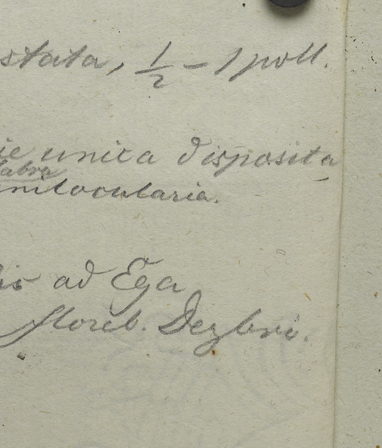 stata, ½ – 1 poll.
ie unica disposita
labra
unilocularia.
is ad Ega
floreb. Dezbri.